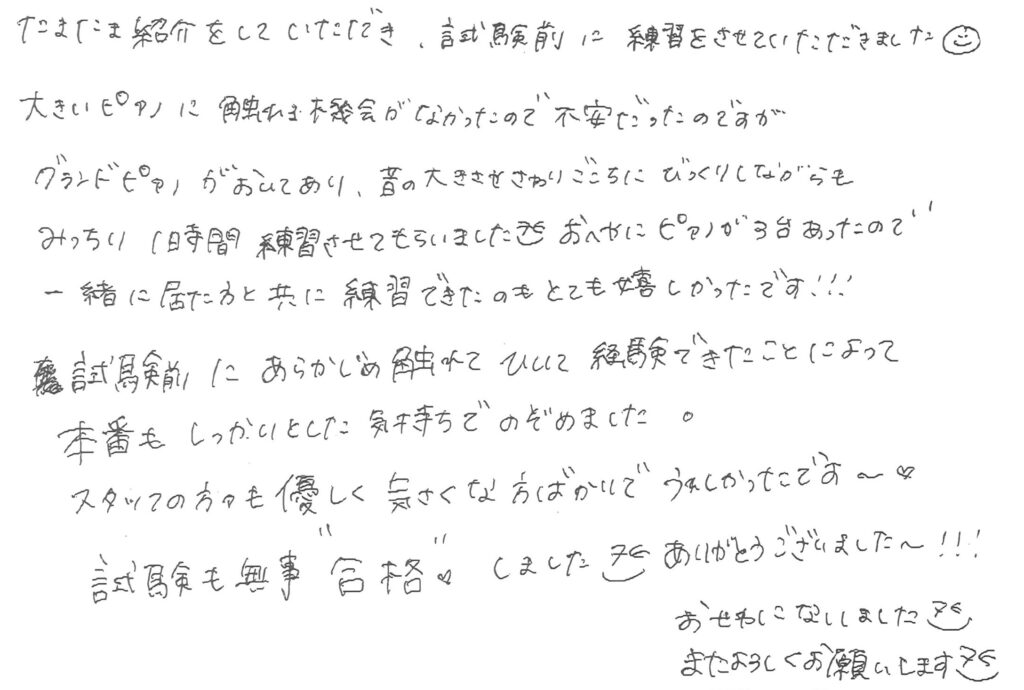 たまたま紹介をしていただき、試験前に練習をさせていただきました
大きいピアノに触れる機会がなかったので不安だったのですが
グランドピアノがおいてあり、音の大きさやさわりごこちにびっくりしながらも
みっちり1時間練習させてもらいました おへやにピアノが3台あったので
一緒に居た方と共に練習できたのもとても嬉しかったです!!!
試験前にあらかじめ触れてひいて経験できたことによって
本番もしっかりとした気持ちでのぞめました。
スタッフの方々も優しく気さくな方ばかりでうれしかったです〜♡
試験も無事"合格"♡しました ありがとうございました〜!!!
おせわになりました
またよろしくお願いします